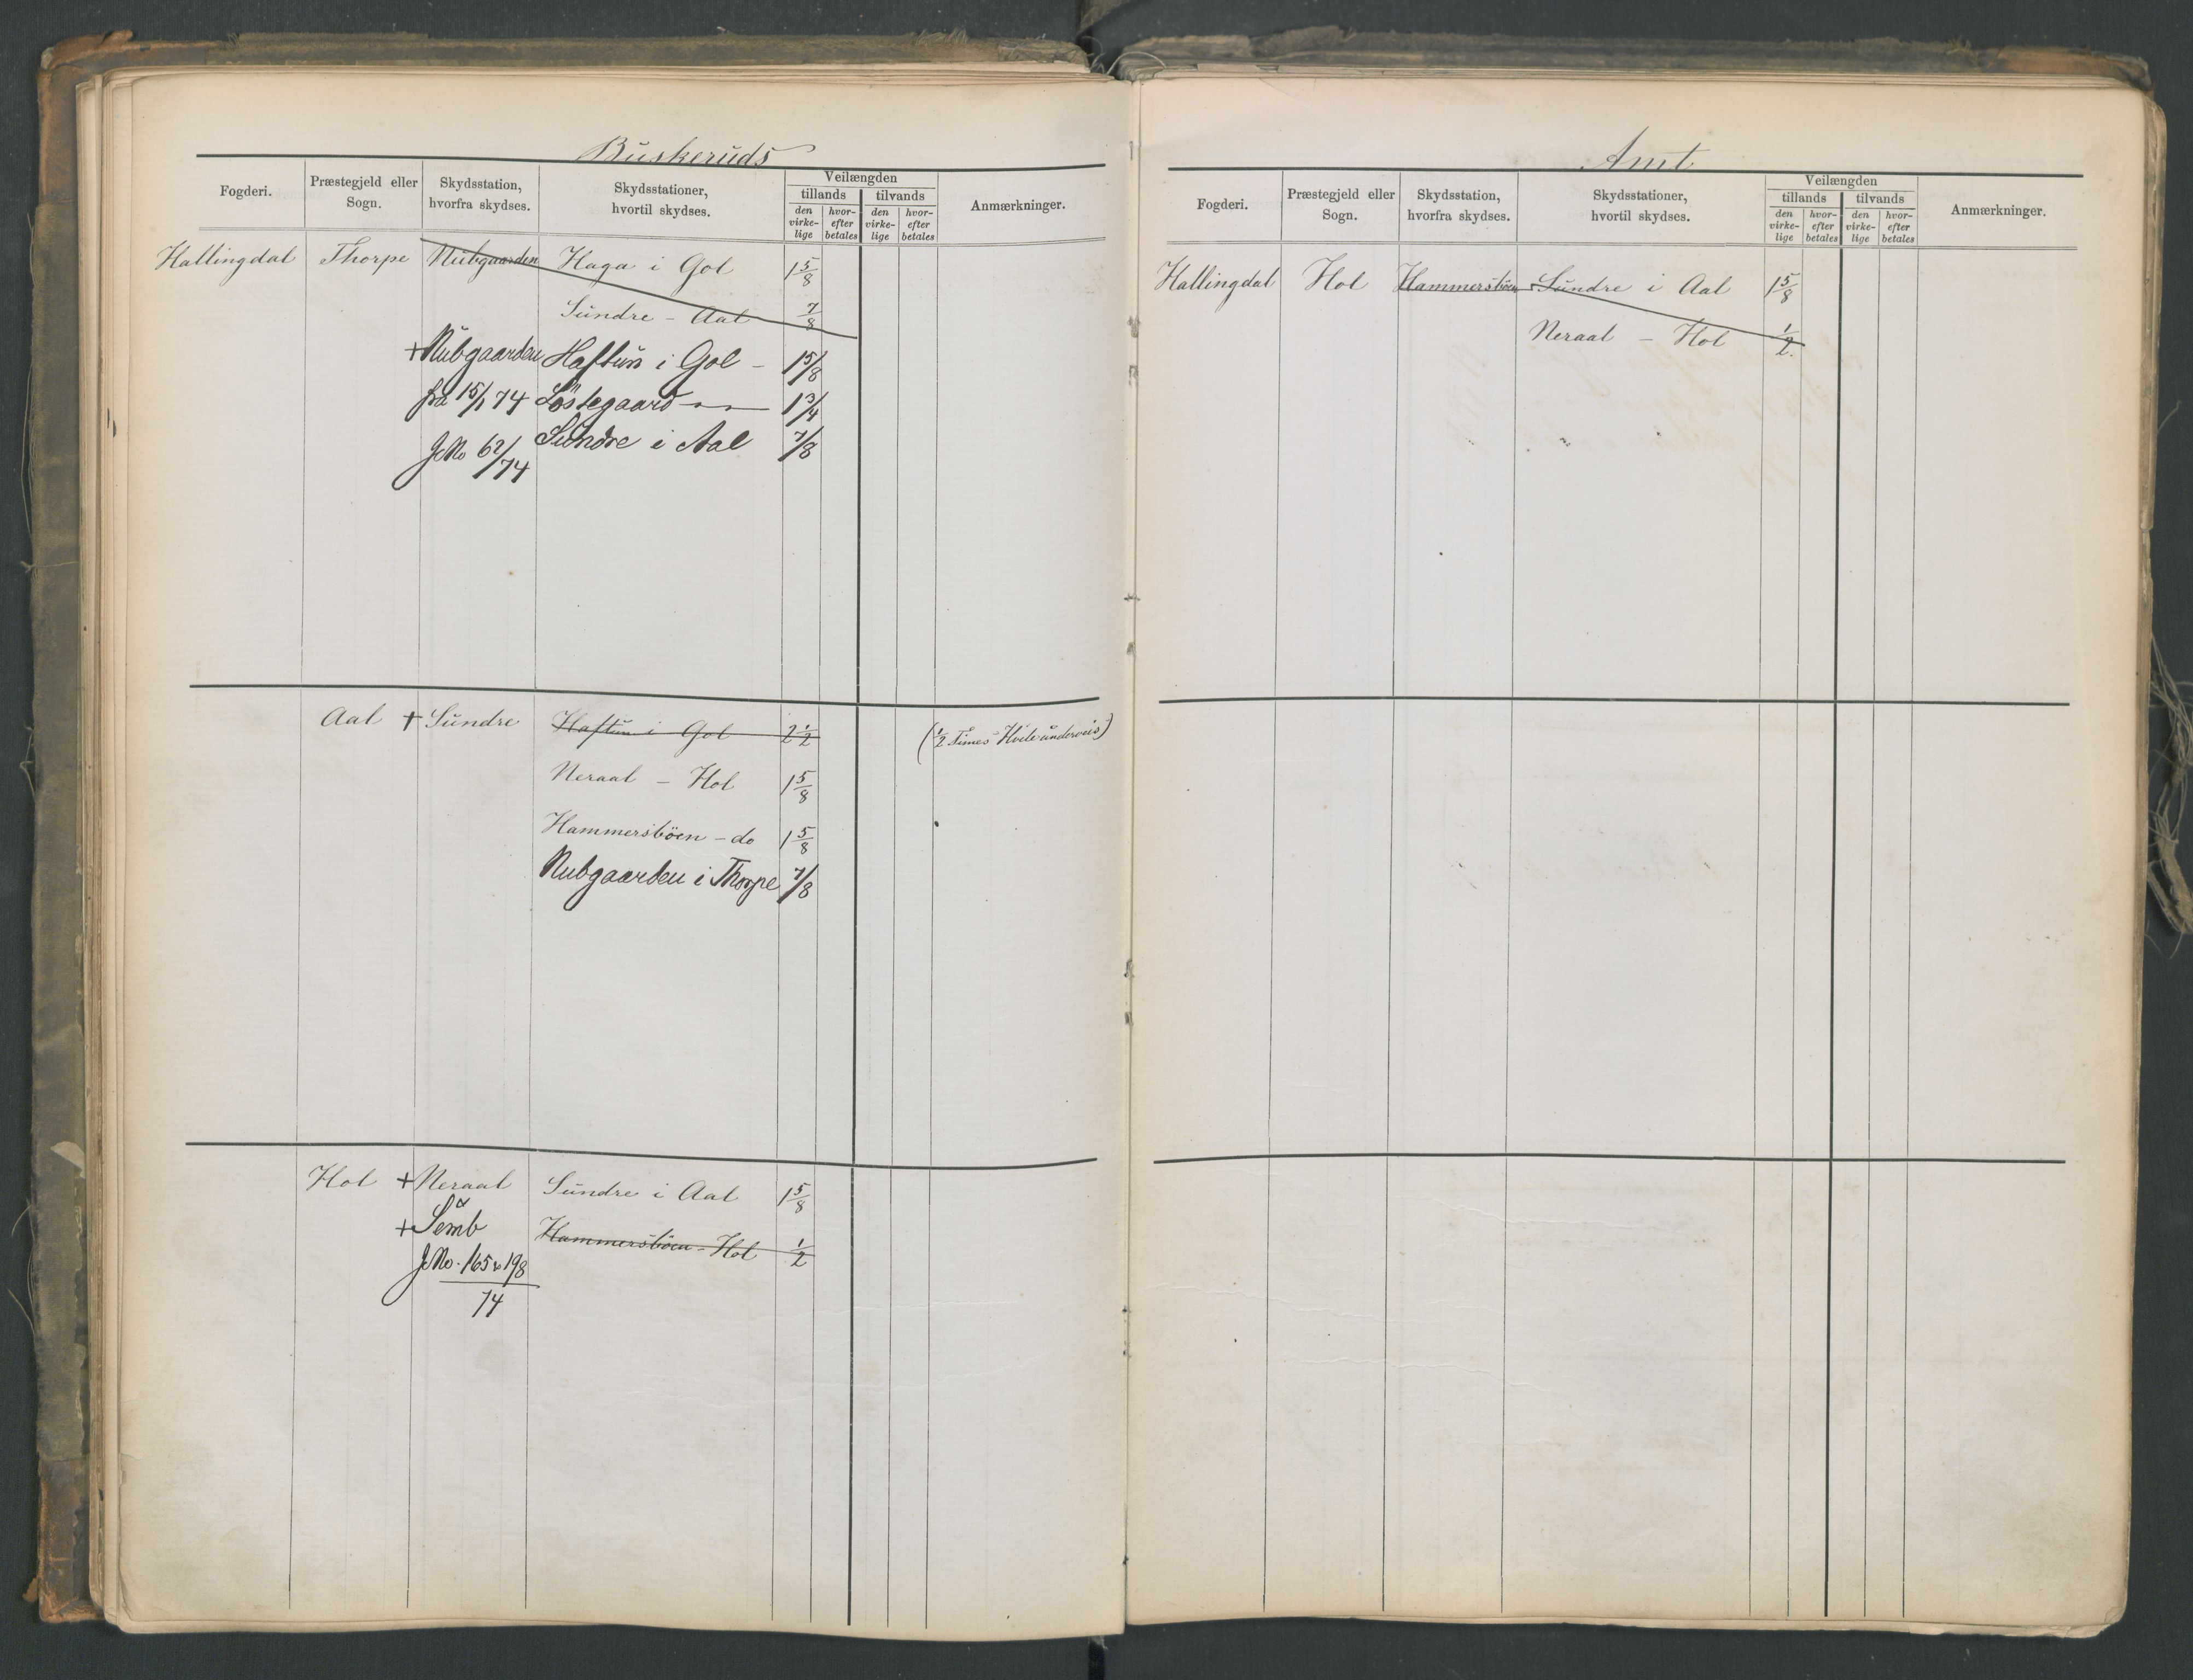 Buskeruds
Fogderi. Præstegjeld eller Sogn. Skydsstation, hvorfra skydses. Skydsstationer, hvortil skydses. Veilængden tillands tilvands den virke-lige hvor-efter betales den virke-lige hvor-efter betales Anmærkninger.
Hallingdal Thorpe Nubgaarden Haga i Gol 1 5/8
Sundre - Aal 7/8
+ Nubgaarden Haftun i Gol - 1 5/8
fra 15/1 74 Löstegaard 1 3/4
JNo 62/74 Sundre i Aal 7/8
Aal + Sundre Haftun i Gol 2 1/2 (1/2 Times Hvile underveis)
Neraal - Hol 1 5/8
Hammersböen - do 1 5/8
Nubgaarden i Thorpe 7/8
Hol + Neraal Sundre i Aal 1 5/8
+ Hammersböen - Hol 1/2
JNo. 165 198
74
Amt
Fogderi. Præstegjeld eller Sogn. Skydsstation, hvorfra skydses. Skydsstationer, hvortil skydses. Veilængden tillands tilvands den virke-lige hvor-efter betales den virke-lige hvor-efter betales Anmærkninger.
Hallingdal Hol Hammersböen Sundre i Aal 1 5/8
Neraal - Hol 1/2